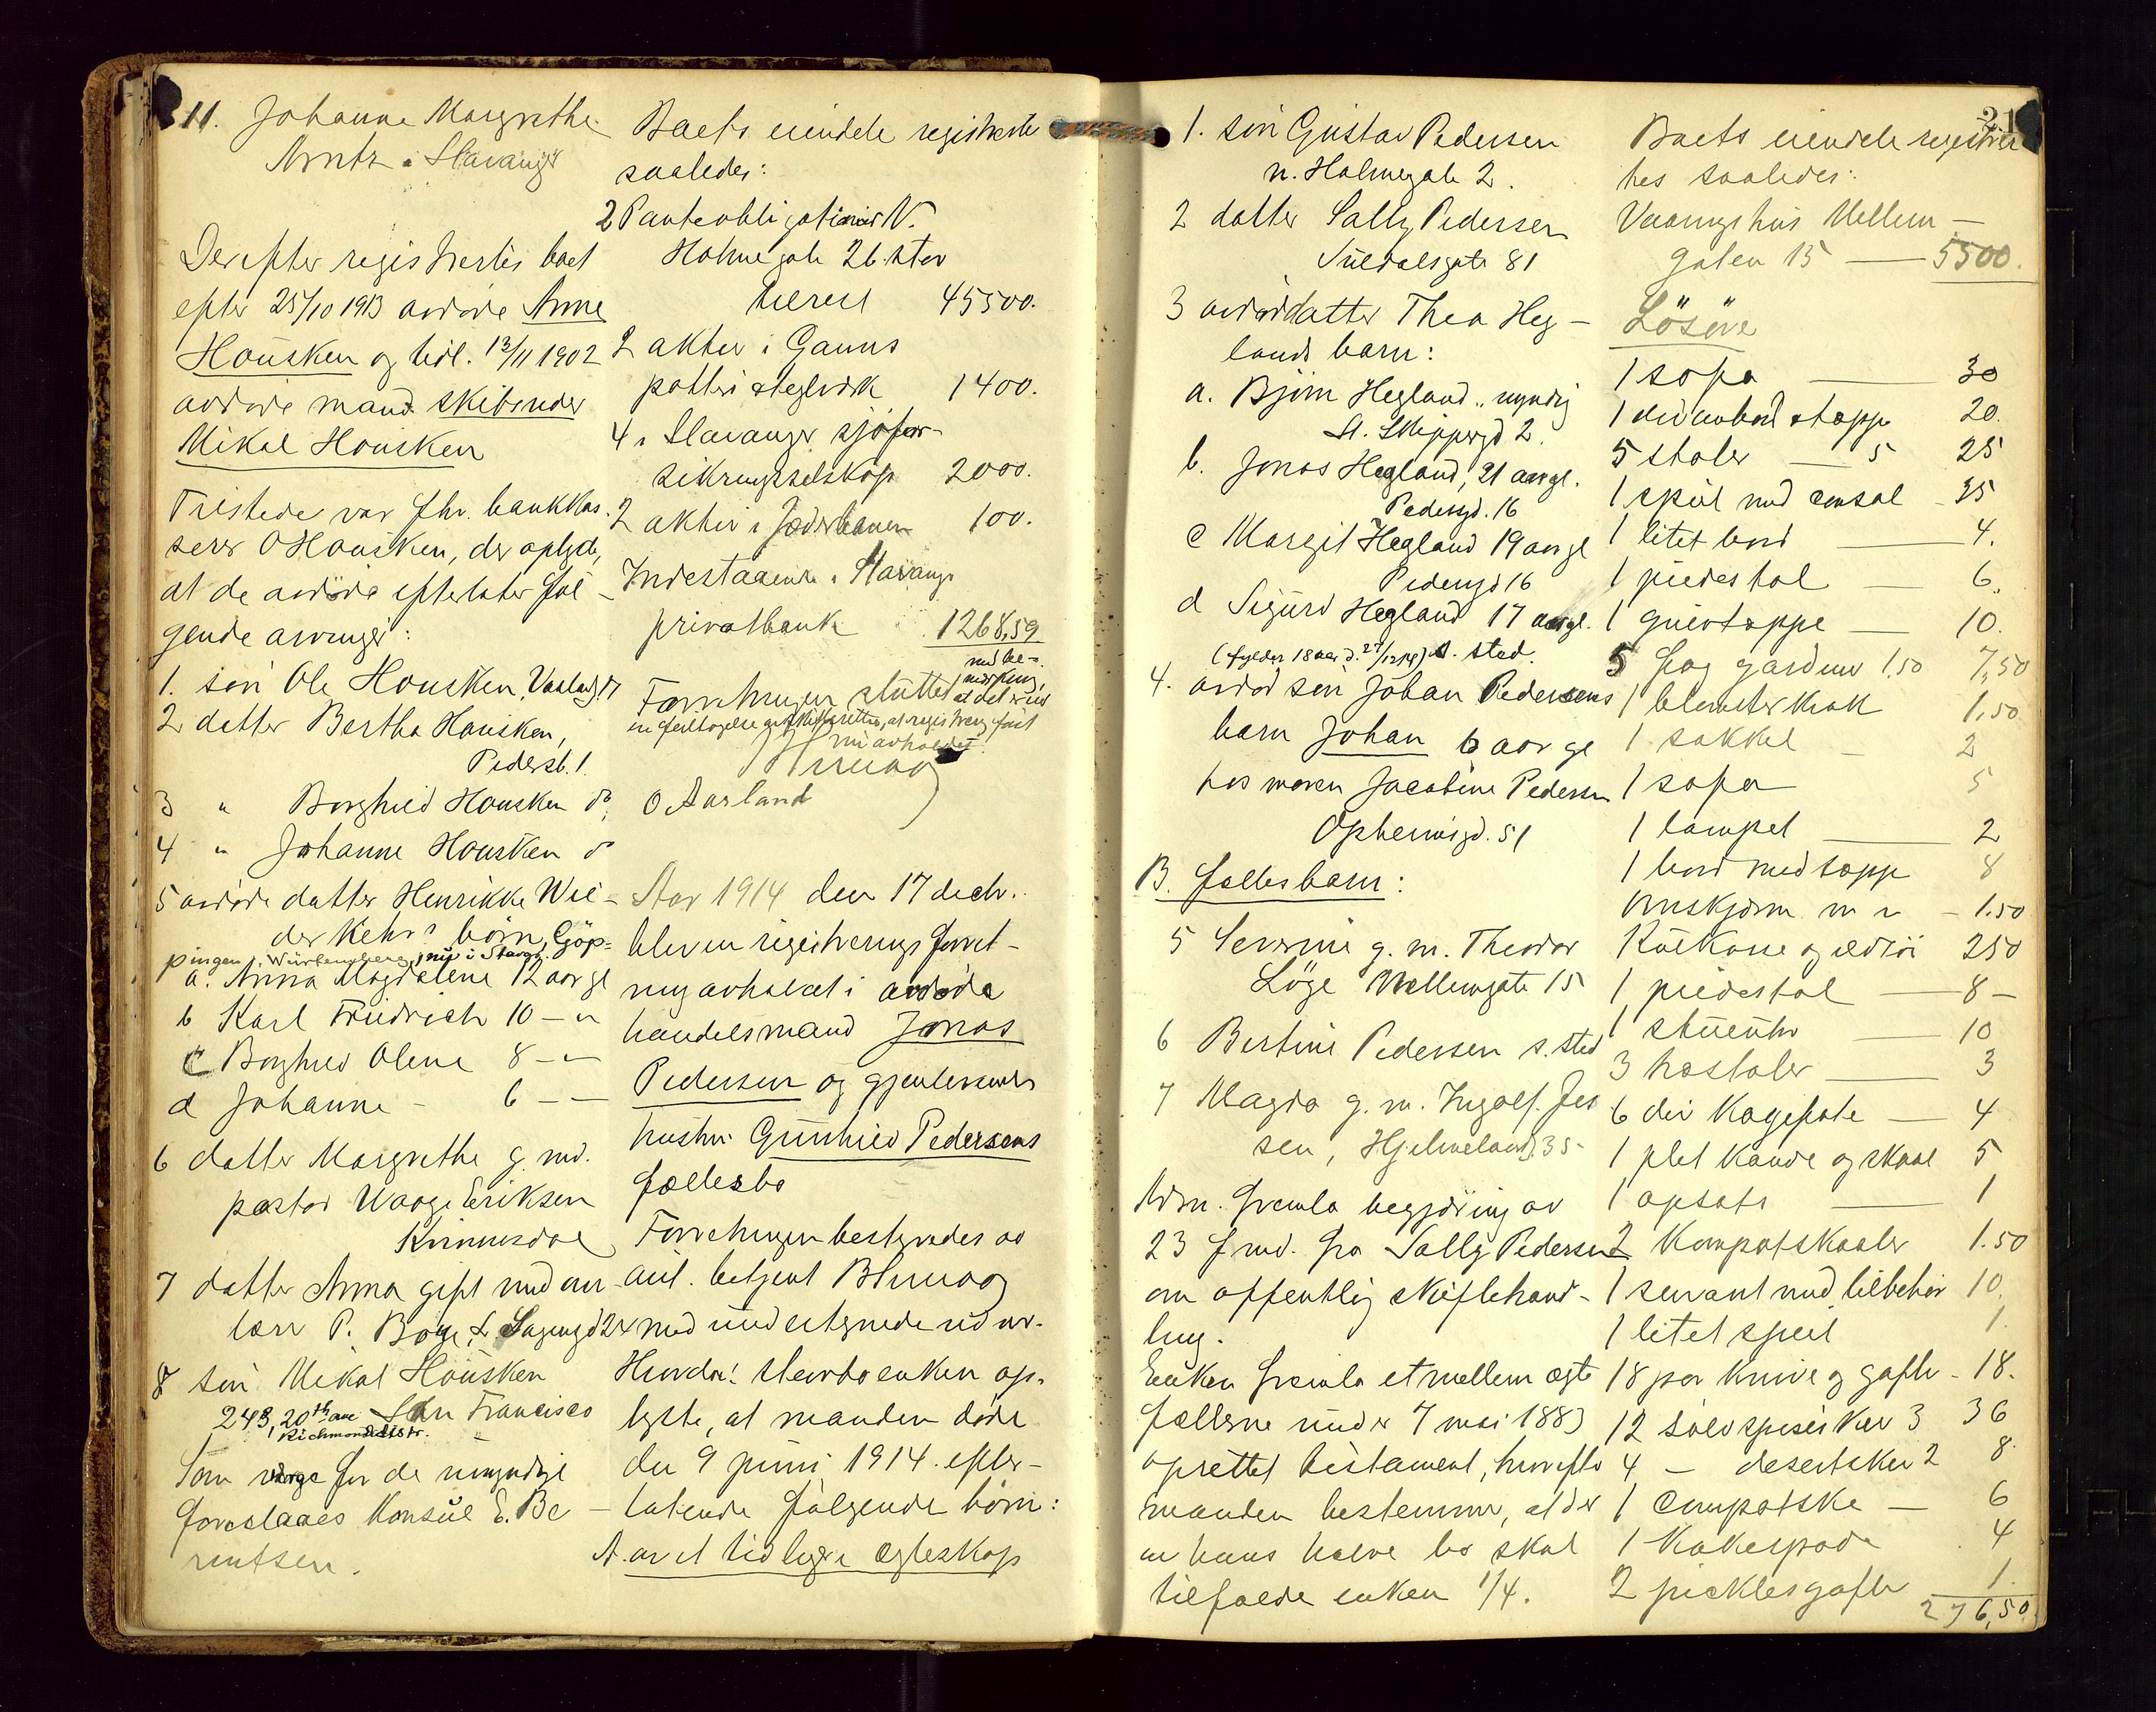 11. Johanne Margrethe
Arntz i Stavanger
Derefter registrertes boet
efter 25/10 1913 avdøde Anne
Housken og tidl. 13/11 1902
avdøde mand skibsreder
Mikal Housken
Tilstede var fhv. bankkas-
serer O Housken, der oplyste,
at de avdøde efterlater føl-
gende arvinger:
1. søn Ole Housken, Vaalandsg. 17
2 datter Bertha Housken,
Pedersb. 1.
3 " Borghild Housken do
4 " Johanne Housken do
5 avdøde datter Henrikke Wil-
der Kehrs børn, Göp=
pingen, Würtemberg, nu i Stavgr.
a. Anna Magdalene 12 aar gl
b Karl Friedrich 10 — "
c Borghild Olene 8 — "
d Johanne - 6 — —
6 datter Margrethe g. m.
pastor Waage Eriksen
Kvinnesdal
7 datter Anna gift med over-
lærer P. Bøge, L Sagveigd 24
8 søn Mikal Housken
243, 20th ave San Francisco
Richmond distr.
Som værge for de umyndige
foreslaaes Konsul E. Be-
rentsen.
Boets eiendele registrertes
saaledes:
2 Panteobligationer N.
Holmegate 26. stor
tilsml 45500.
2 aktier i Ganns
potteri & teglverk 1400.
4 i Stavanger sjøfor-
sikringsselskap 2000.
2 aktier i Jæderbanen 100.
Indestaaende i Stavanger
privatbank 1268,59
Forretningen sluttet med be-
merkning, at det er ved
en feiltagelse av skifteretten, at registrering først
nu avholdes.
O Aarland
Aar 1914 den 17 decbr.
blev en registreringsforret-
ning avholdt i avdøde
handelsmand Jonas
Pedersen og gjenlevende
hustru Gunhild Pedersens
fællesbo
Forretningen bestyredes av
aut. betjent
med undertegnede vidner.
Hvorda: stervboenken op-
lyste, at manden døde
den 9 juni 1914 efter-
latende følgende børn:
A. av et tidligere egteskap
21
1. søn Gustav Pedersen
n. Holmegate 2.
2 datter Sally Pedersen
Suldalsgate 81
3 avdød datter Thea Heg-
lands barn:
a. Bjørn Hegland, myndig
St. Skippergd 2.
b. Jonas Hegland, 21 aar gl.
Pedersgd. 16
c Margit Hegland 19 aar gl
Pedersgd 16
d Sigurd Hegland 17 aar gl.
(fylder 18 aar d. 27/12 14) s. sted.
4. avdød søn Johan Pedersens
barn Johan 6 aar gl
hos moren Jacobine Pedersen
Opheimsgd. 51
B. fællesbarn:
5 Severine g. m. Theodor
Løge Mellemgate 15
6 Bertine Pedersen s. sted
7 Magda g. m. Ingolf Jes
sen, Hjelmelandsg. 35
Adm. fremla begjæring av
23 f md. fra Sally Pedersen
om offentlig skiftehand-
ling.
Enken fremla et mellem egte
fællerne under 7 mai 1883
oprettet testament, hvorefter
manden bestemmer, at der
av hans halve bo skal
tilfalde enken 1/4.
Boets eiendele registrer
tes saaledes:
Vaaningshus Mellem-
gaten 15 — 5500.
Løsøre
1 sofa — 30
1 divanbord & tæppe 20.
5 stoler — 5 25
1 speil med consol - 35
1 litet bord — 4.
1 piedestal — 6.
1 gulvtæppe — 10.
5 fag gardiner 1.50 7,50
1 blomsterkrak 1,50
1 sokkel — 2
1 sofa 5
1 lampet — 2
1 bord med tæppe 8
Ovnskjerm m m - 1.50
Kulkasse og ildtøi 2 50
1 piedestal — 8 —
1 stueuhr — 10
3 hostoler — 3
6 div Kagefate — 4
1 plet kande og skaal 5
1 opsats — 1
2 Kompotskaaler 1.50
1 servant med tilbehør 10.
1 litet speil 1.
18 par knive og gafler - 18.
12 sølvspiseskeer 3 36
4 — desertskeer 2 8
1 compotske — 6
1 Kakespade 4
2 picklesgafler 1.
276,50